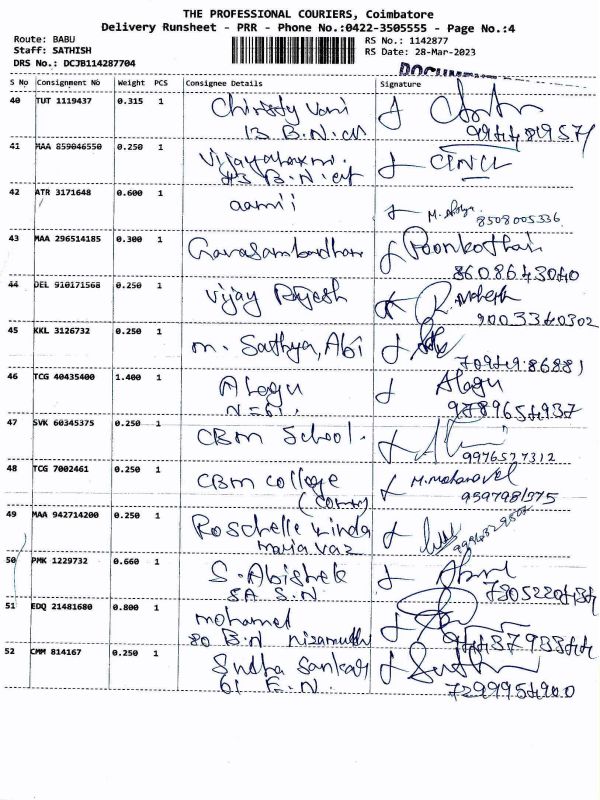 THE PROFESSIONAL COURIERS, Coimbatore
Delivery Runsheet - PRR - Phone No.:0422-3505555 - Page No.:4
Route: BABU RS No.: 1142877
Staff: SATHISH RS Date: 28-Mar-2023
DRS No.: DCJB114287704
S No Consignment No Weight PCS Consignee Details Signature
40 TUT 1119437 0.315 1 Christy Vani
13 B.N.
41 MAA 859046550 0.250 1 Vijayalaxmi.
#3 B.N.
42 ATR 3171648 0.600 1 aamii
8508005336
43 MAA 296514185 0.300 1 Poonkothai
8608643040
44 DEL 910171568 0.250 1 Vijay Rajesh R. Mahesh
9003340302
45 KKL 3126732 0.250 1 m. Sathya, Abi
46 TCG 40435400 1.400 1 Alagu Alagu
9789654937
47 SVK 60345375 0.250 1 CBM School.
9976527312
48 TCG 7002461 0.250 1 CBM College
49 MAA 942714200 0.250 1 Roschelle Linda
maria vaz
50 PMK 1229732 0.660 1 S. Abishek
5A S.N.
51 EDQ 21481680 0.800 1 mohamed
80 B.N
52 CMM 814167 0.250 1 Sudha Sankar
61 E.N. 7299954900